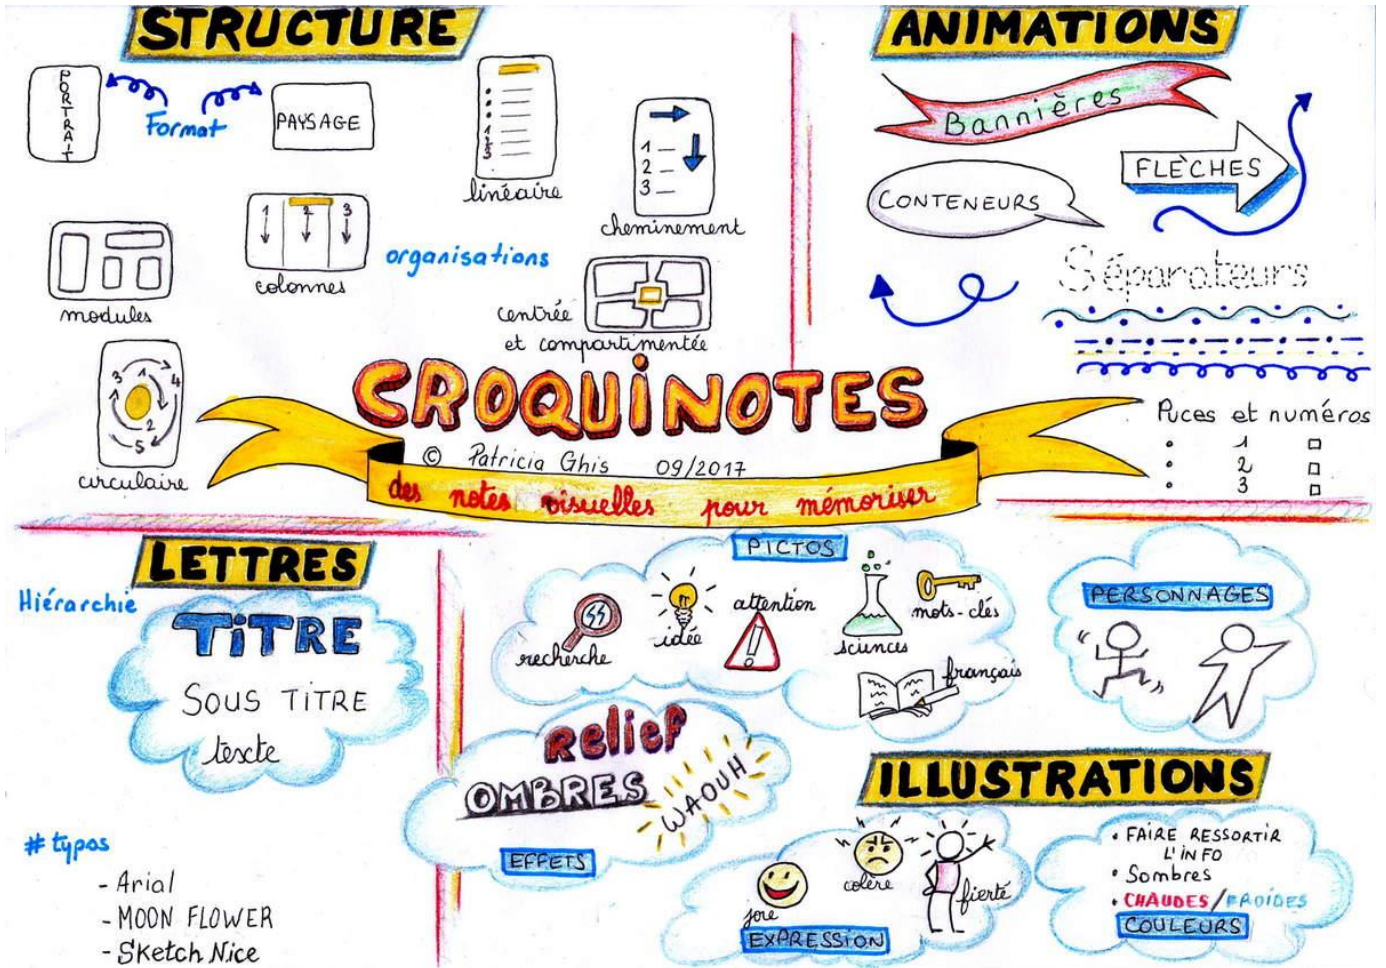 STRUCTURE
PORTRAIT
Format
PAYSAGE
1
2
3
linéaire
1
2
3
cheminement
modules
1 2 3
colonnes
organisations
centrée
et compartimentée
3 1 4
2
5
circulaire
ANIMATIONS
Bannières
CONTENEURS
FLÈCHES
Séparateurs
Puces et numéros
1
2
3
CROQUINOTES
© Patricia Ghis 09/2017
des notes visuelles pour mémoriser
LETTRES
Hiérarchie
TiTRE
SOUS TITRE
texte
# typos
- Arial
- MOON FLOWER
- Sketch Nice
PICTOS
recherche
idée
attention
!
sciences
mots-clés
français
PERSONNAGES
Relief
OMBRES
WAOUH
EFFETS
ILLUSTRATIONS
joie
colère
fierté
EXPRESSION
• FAIRE RESSORTIR
L'INFO
• Sombres
• CHAUDES/FROIDES
COULEURS